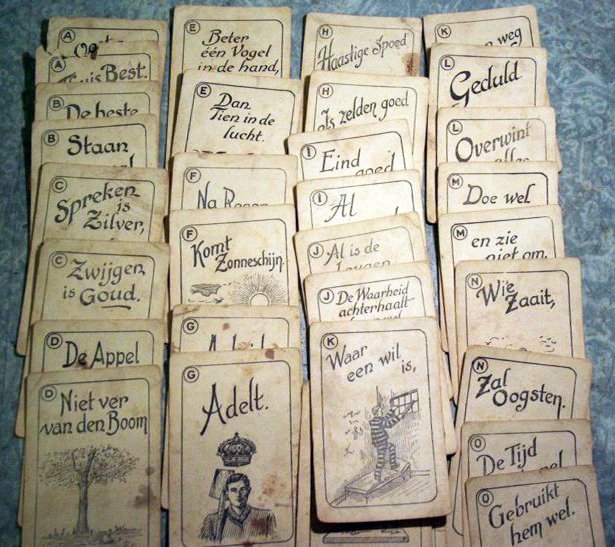 A
A
Thuis Best.
B
De beste
B
Staan
C
Spreken
is
Zilver,
C
Zwijgen
is Goud.
D
De Appel
D
Niet ver
van den Boom
E
Beter
één Vogel
in de hand,
E
Dan
Tien in de
lucht.
F
Na Regen
F
Komt
Zonneschijn.
G
G
Adelt.
H
Haastige Spoed
H
Is zelden goed
I
Eind
goed
I
Al
J
Al is de
J
De Waarheid
achterhaalt
K
Waar
een wil
is,
K
weg
L
Geduld
L
Overwint
alles
M
Doe wel
M
en zie
niet om.
N
Wie
Zaait,
N
Zal
Oogsten.
O
De Tijd
O
Gebruikt
hem wel.